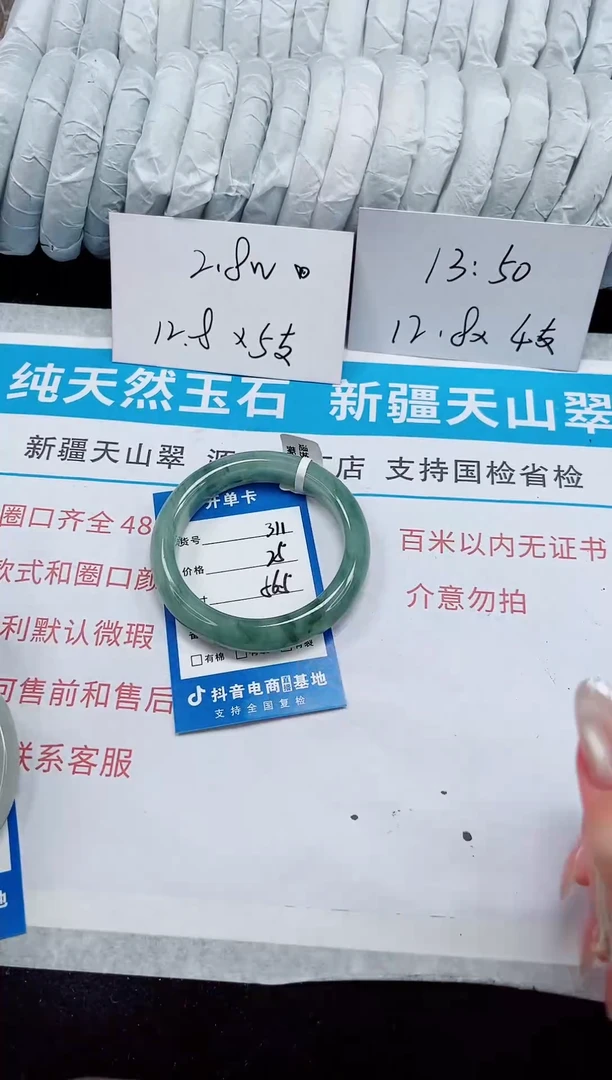 2.8w
12.8 x5支
13:50
12.8x 4支
纯天然玉石 新疆天山翠
新疆天山翠 源 店 支持国检省检
圈口齐全48
款式和圈口颜
利默认微瑕
可售前和售后
联系客服
百米以内无证书
介意勿拍
开单卡
货号 311
价格 25
565
有棉
抖音电商直播基地
支持全国复检